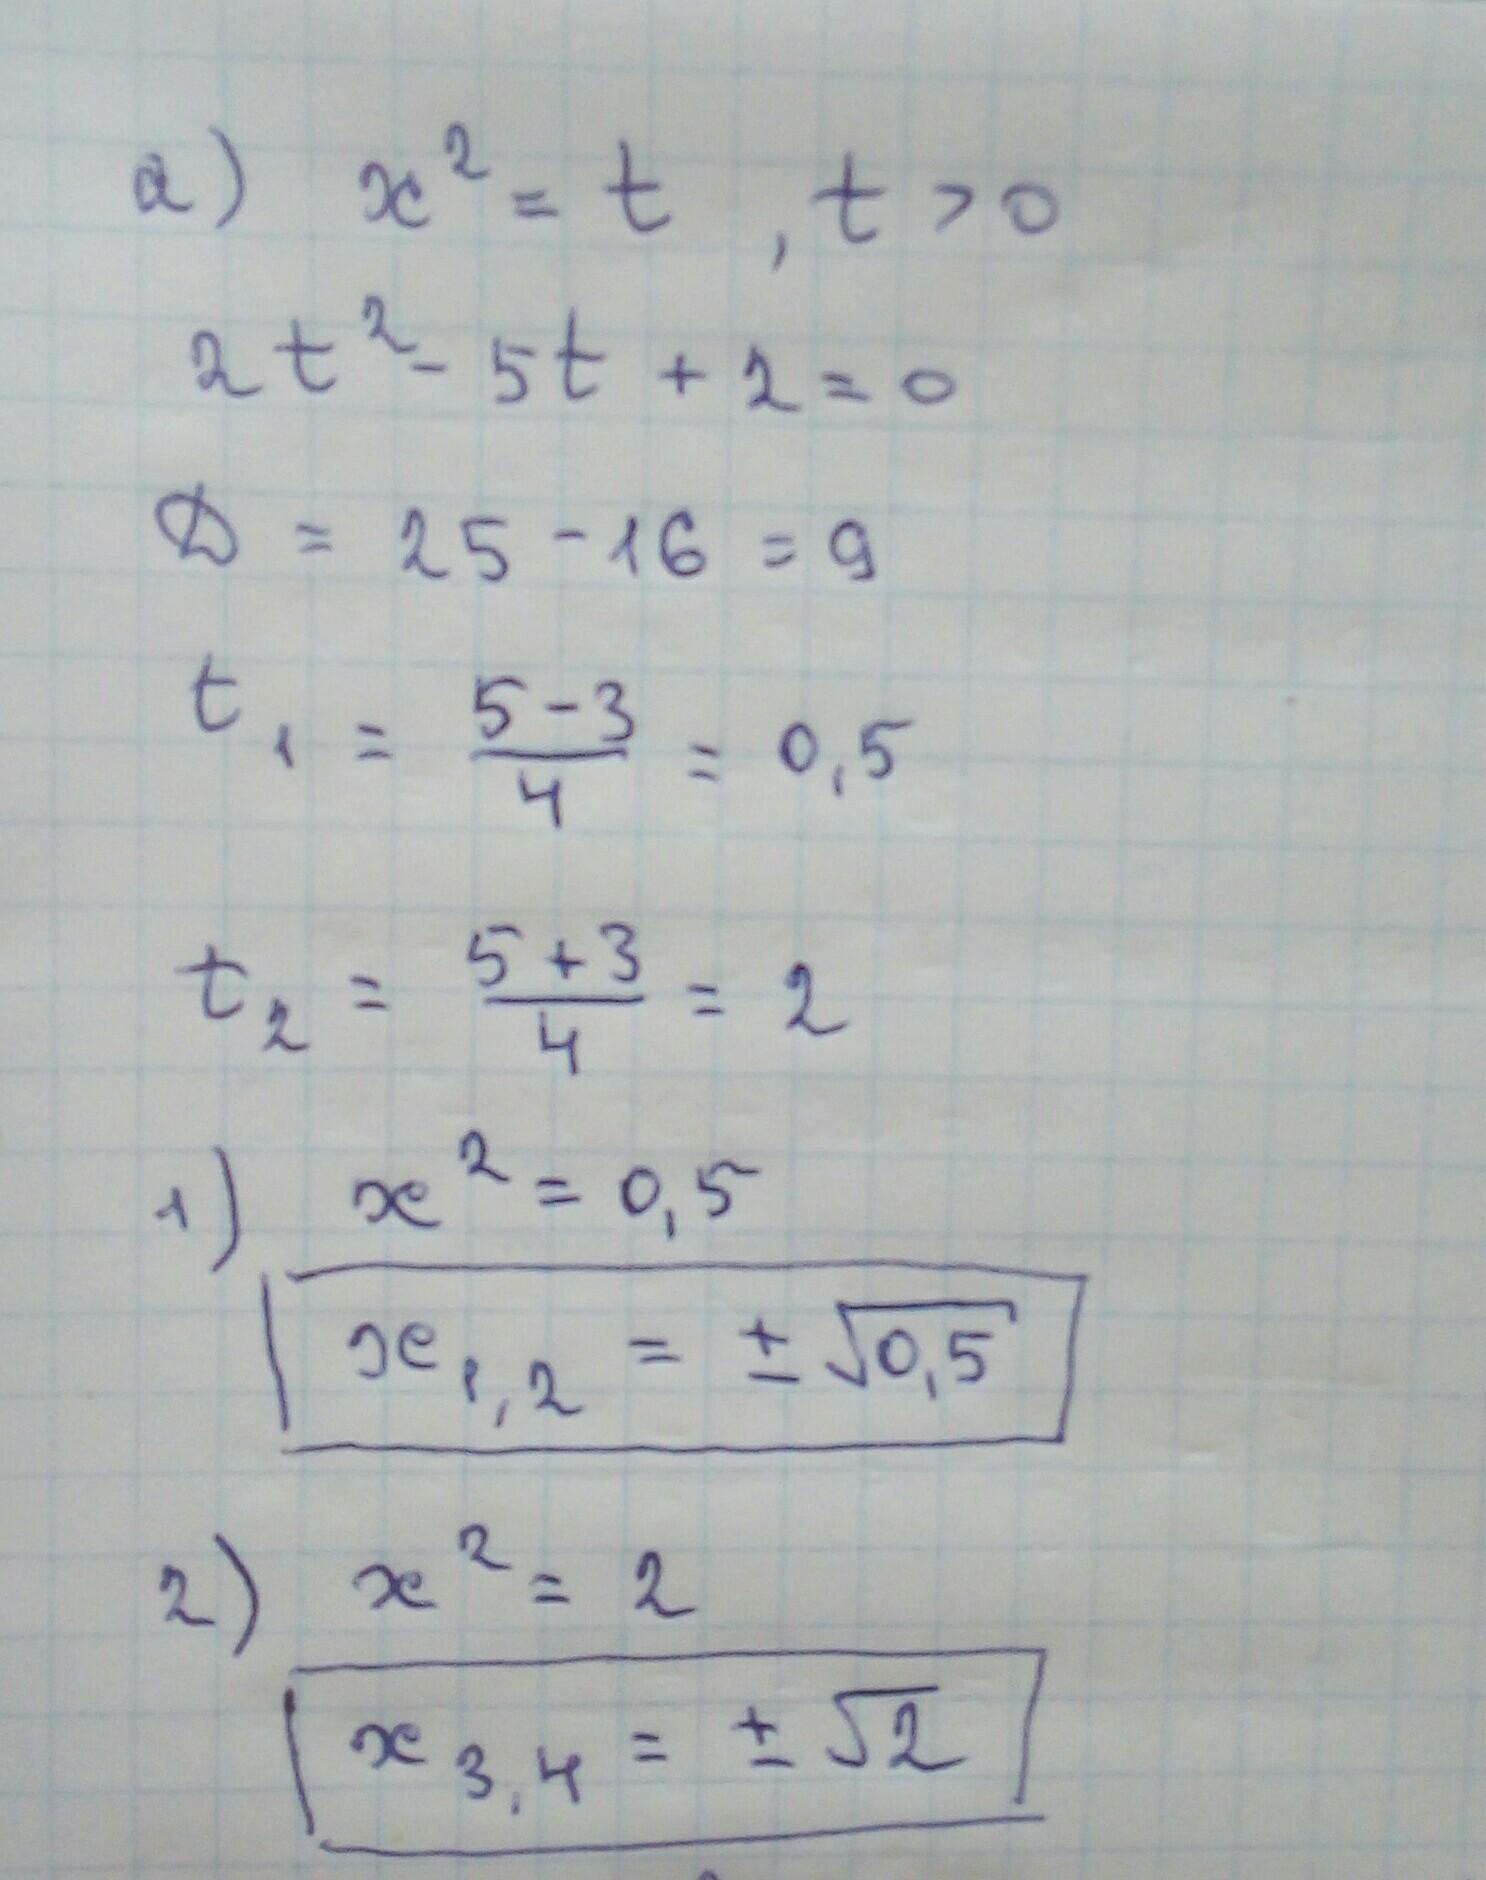 а) x² = t , t > 0
2t² - 5t + 2 = 0
D = 25 - 16 = 9
t₁ = (5 - 3)/4 = 0,5
t₂ = (5 + 3)/4 = 2
1) x² = 0,5
x₁,₂ = ± √0,5
2) x² = 2
x₃,₄ = ± √2